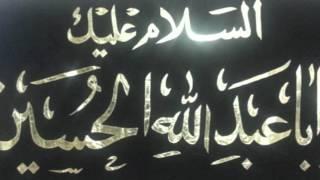 السلام عليك
اباعبدالله الحسين